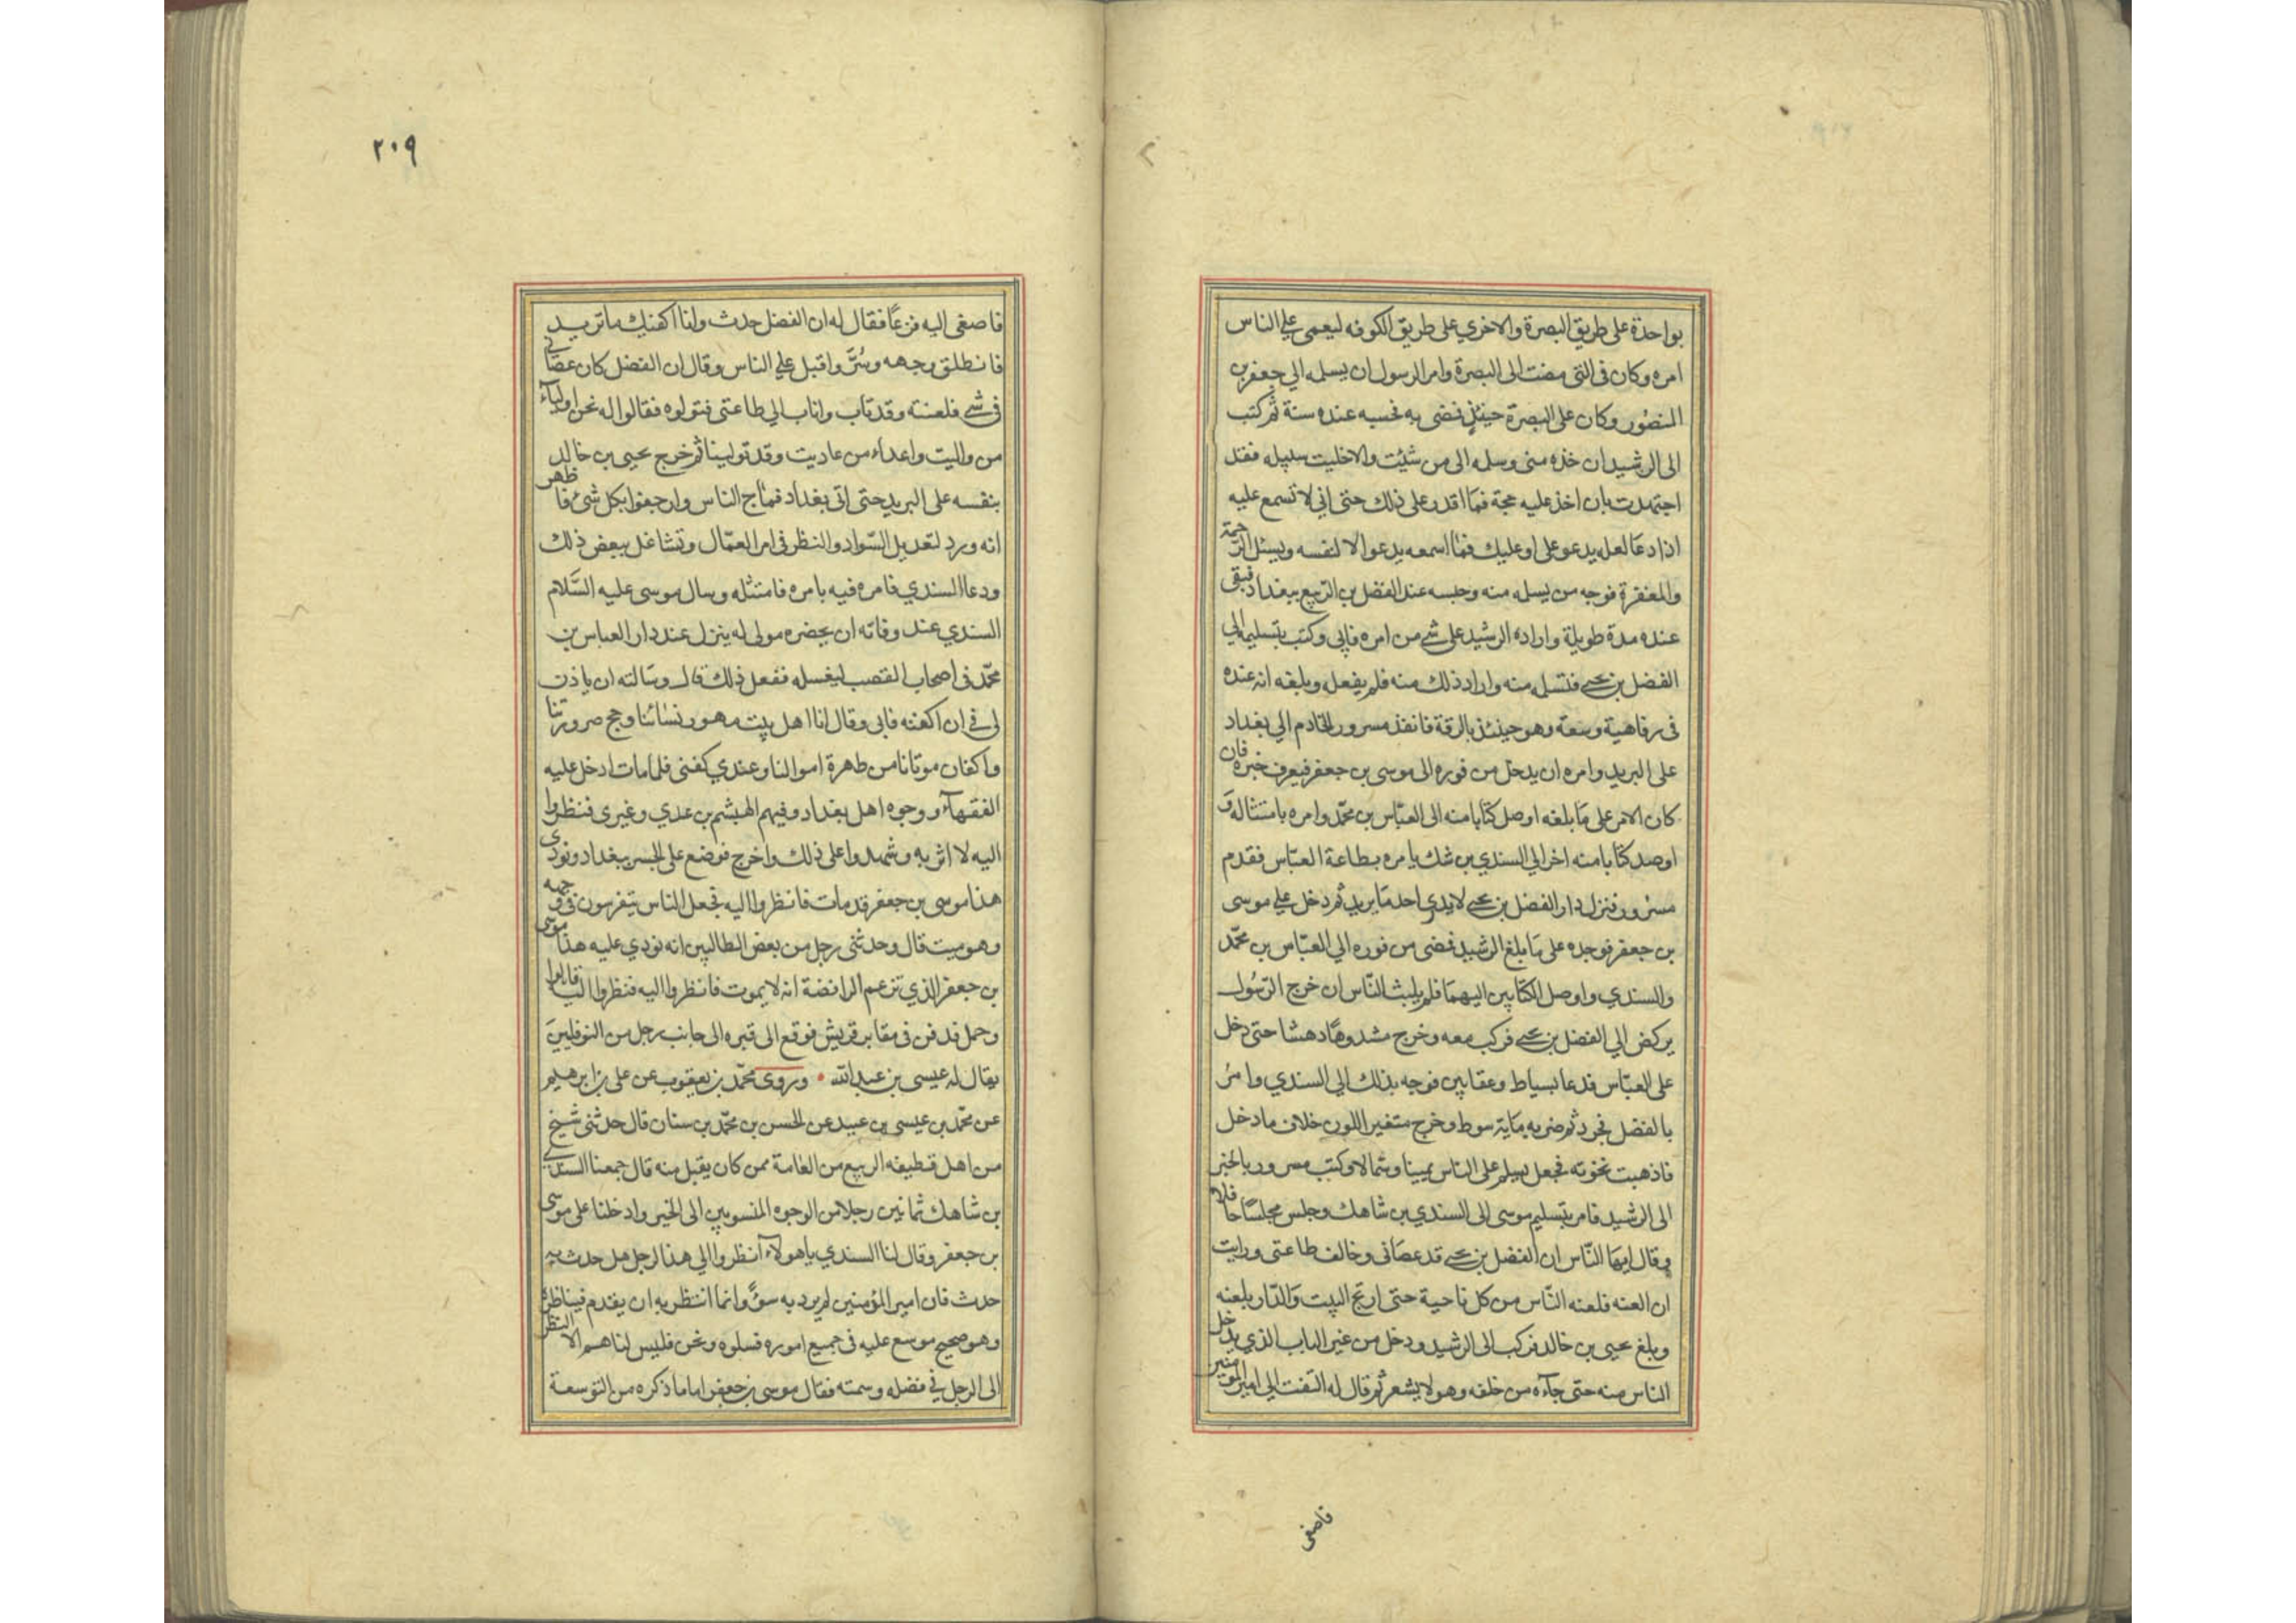 بواحدة على طريق البصرة والاخري على طريق الكوفه ليعمى علي الناس
امره وكان في التي مضت الى البصرة وامر الرسول ان يسلمه الي جعفر بن
المنصور وكان على البصرة حينئذ فمضى به فحبسه عنده سنة ثم كتب
الى الرشيد ان خذه منى وسله الى من شئت والا خليت سبيله فقد
اجتهدت بان اخذ عليه حجة فما اقدر على ذلك حتى اني لا تسمع عليه
اذا دعا لعله يدعو على او عليك فما اسمعه يدعو الا لنفسه ويسئل الرحمة
والمغفرة فوجه من يسلمه منه وحبسه عند الفضل بن الربيع ببغداد فبقى
عنده مدة طويلة واراده الرشيد على شي من امره فابي وكتب بتسليمه الي
الفضل بن يحيى فتسلمه منه واراد ذلك منه فلم يفعل وبلغه انه عنده
فى رفاهية وسعة وهو حينئذ بالرقة فانفذ مسرور الخادم الي بغداد
على البريد وامره ان يدخل من فوره الى موسى بن جعفر فيعرف خبره فان
كان الامر على ما بلغه اوصل كتابا منه الى العباس بن محمد وامره بامتثاله و
اوصل كتابا منه اخر الي السندي بن شك يامره بطاعة العباس فقدم
مسرور فنزل دار الفضل بن يحيى لا يدري احد ما يريد ثم دخل علي موسى
بن جعفر فوجده على ما بلغ الرشيد فمضى من فوره الي العباس بن محمد
والسندي واوصل الكتابين اليهما فلم يلبث الناس ان خرج الرسول
يركض الي الفضل بن يحيى فركب معه وخرج مشدوها دهشا حتى دخل
على العباس فدعا بسياط وعقابين فوجه بذلك الي السندي وامر
بالفضل فجرد ثم ضربه ماية سوط وخرج متغير اللون خلاف ما دخل
فاذهبت نخوته فجعل يسلم على الناس يمينا وشمالا وكتب مسرور بالخبر
الى الرشيد فامر بتسليم موسى الى السندي بن شاهك وجلس مجلسا حافلا
وقال ايها الناس ان الفضل بن يحيى قد عصانى وخالف طاعتى ورايت
ان العنه فلعنه الناس من كل ناحية حتى ارتج البيت والدار بلعنه
وبلغ يحيى بن خالد فركب الى الرشيد ودخل من غير الباب الذي يدخل
الناس منه حتى جآءه من خلفه وهو لا يشعر ثم قال له التفت الي امير المومنين
فاصغى
٢٠٩
فاصغى اليه فزعا فقال له ان الفضل حدث وانا اكفيك ما تريد
فانطلق وجهه وسر واقبل علي الناس وقال ان الفضل كان عصانى
فى شي فلعنته وقد تاب واناب الي طاعتى فتولوه فقالوا له نحن اولياء
من واليت واعداء من عاديت وقد تولينا ثم خرج يحيى بن خالد
بنفسه على البريد حتى اتى بغداد فماج الناس وارجفوا بكل شئ فاظهر
انه ورد لتعديل السواد والنظر فى امر العمال وتشاغل ببعض ذلك
ودعا السندي فامره فيه بامره فامتثله وسال موسى عليه السلام
السندي عند وفاته ان يحضره مولى له ينزل عند دار العباس بن
محمد فى اصحاب القصب ليغسله ففعل ذلك قال وسالته ان ياذن
لى في ان اكفنه فابى وقال انا اهل بيت مهور نسائنا وحج صرورتنا
واكفان موتانا من طهرة اموالنا وعندي كفنى فلما مات ادخل عليه
الفقهآء ووجوه اهل بغداد وفيهم الهيثم بن عدي وغيرى فنظروا
اليه لا اثر به وشهدوا على ذلك واخرج فوضع على الجسر ببغداد ونودى
هذا موسى بن جعفر قد مات فانظروا اليه فجعل الناس يتفرسون فى وجهه
وهو ميت قال وحدثنى رجل من بعض الطالبين انه نودي عليه هذا موسى
بن جعفر الذي تزعم الرافضة انه لا يموت فانظروا اليه فنظروا اليه قالوا
وحمل فدفن فى مقابر قريش فوقع الى قبره الى جانب رجل من النوفليين
يقال له عيسى بن عبدالله وروى محمد بن يعقوب عن على بن ابرهيم
عن محمد بن عيسى بن عبيد عن الحسن بن محمد بن سنان قال حدثنى شيخ
من اهل قطيفه الربيع من العامة ممن كان يقبل منه قال جمعنا السندي
بن شاهك ثمانين رجلا من الوجوه المنسوبين الى الخير وادخلنا على موسى
بن جعفر وقال لنا السندي يا هولآء انظروا الي هذا الرجل هل حدث به
حدث فان امير المؤمنين لم يرد به سوء وانما انتظر به ان يقدم فيناظره
وهو صحيح موسع عليه فى جميع اموره فسلوه ونحن فليس لنا هم الا النظر
الى الرجل في فضله وسمته فقال موسى بن جعفر اما ما ذكره من التوسعة